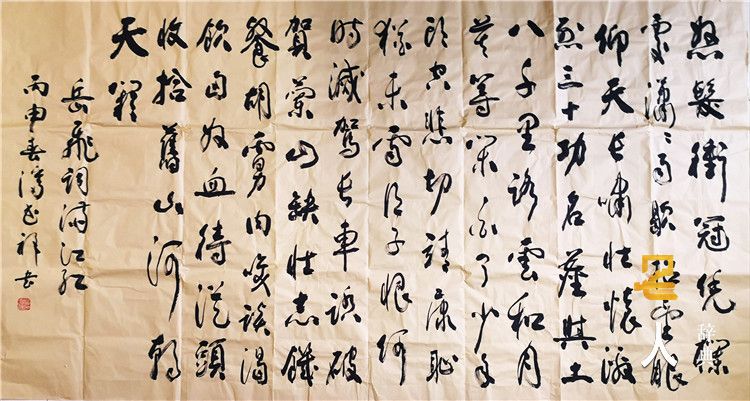 怒髮衝冠凭欄
處瀟瀟雨歇抬望眼
仰天長嘯壯懷激
烈三十功名塵與土
八千里路雲和月
莫等閑白了少年
頭空悲切靖康恥
猶未雪臣子恨何
時滅駕長車踏破
賀蘭山缺壯志饑
餐胡虜肉笑談渴
飲匈奴血待從頭
收拾舊山河朝
天闕
岳飛詞滿江紅
丙申春祥書
人
辞典